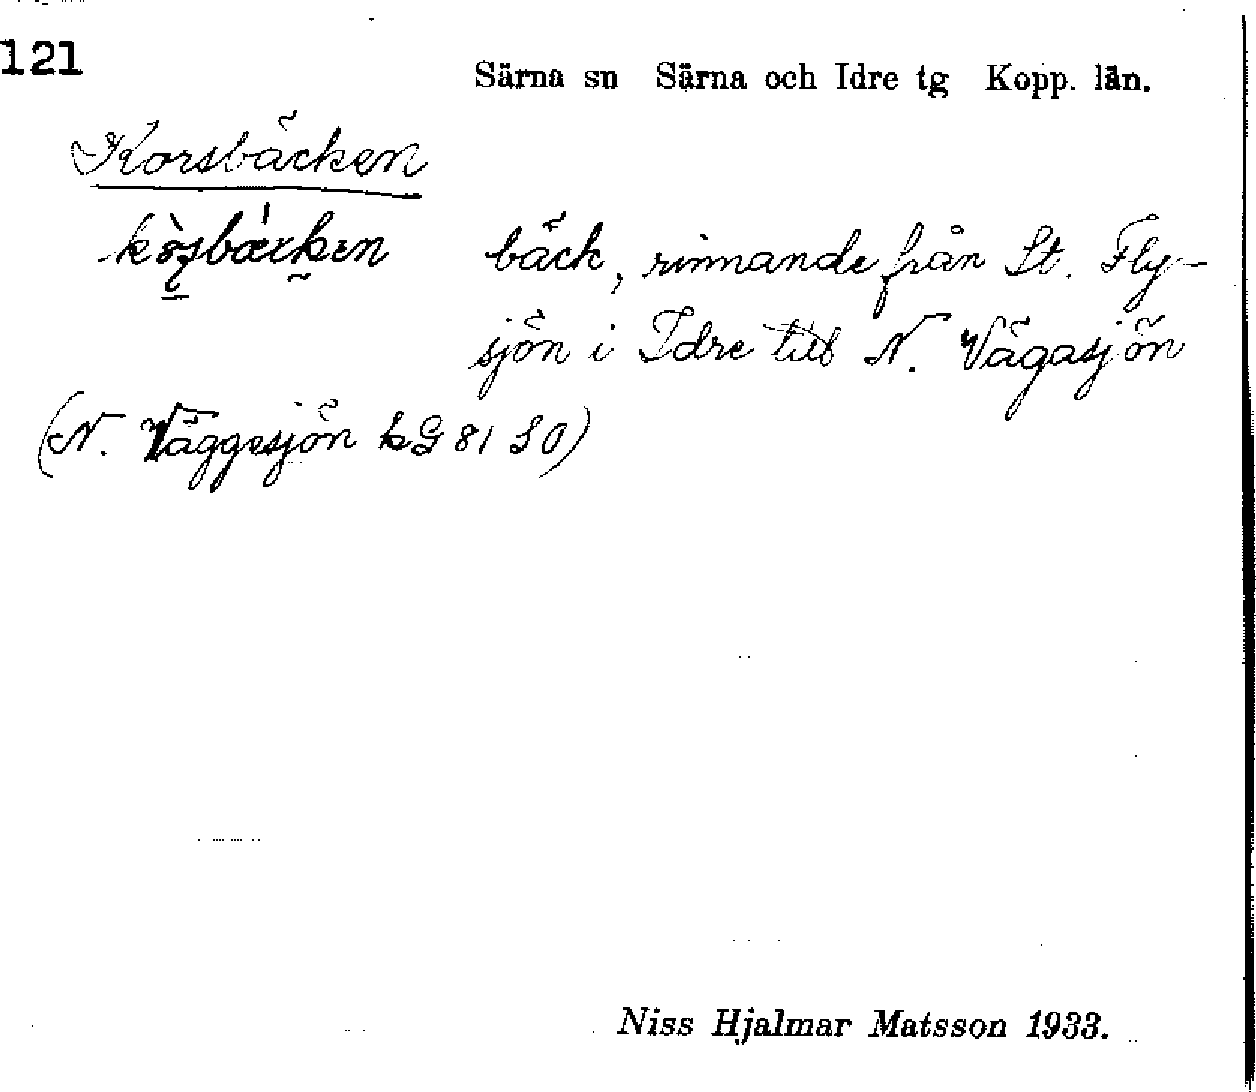 121
Särna sn Särna och Idre tg Kopp. län.
Korsbäcken
bäck, rinnande från St. Fly-
sjön i Idre till N. Vågasjön
(N. Väggesjön kG 81 SO)
Niss Hjalmar Matsson 1933.